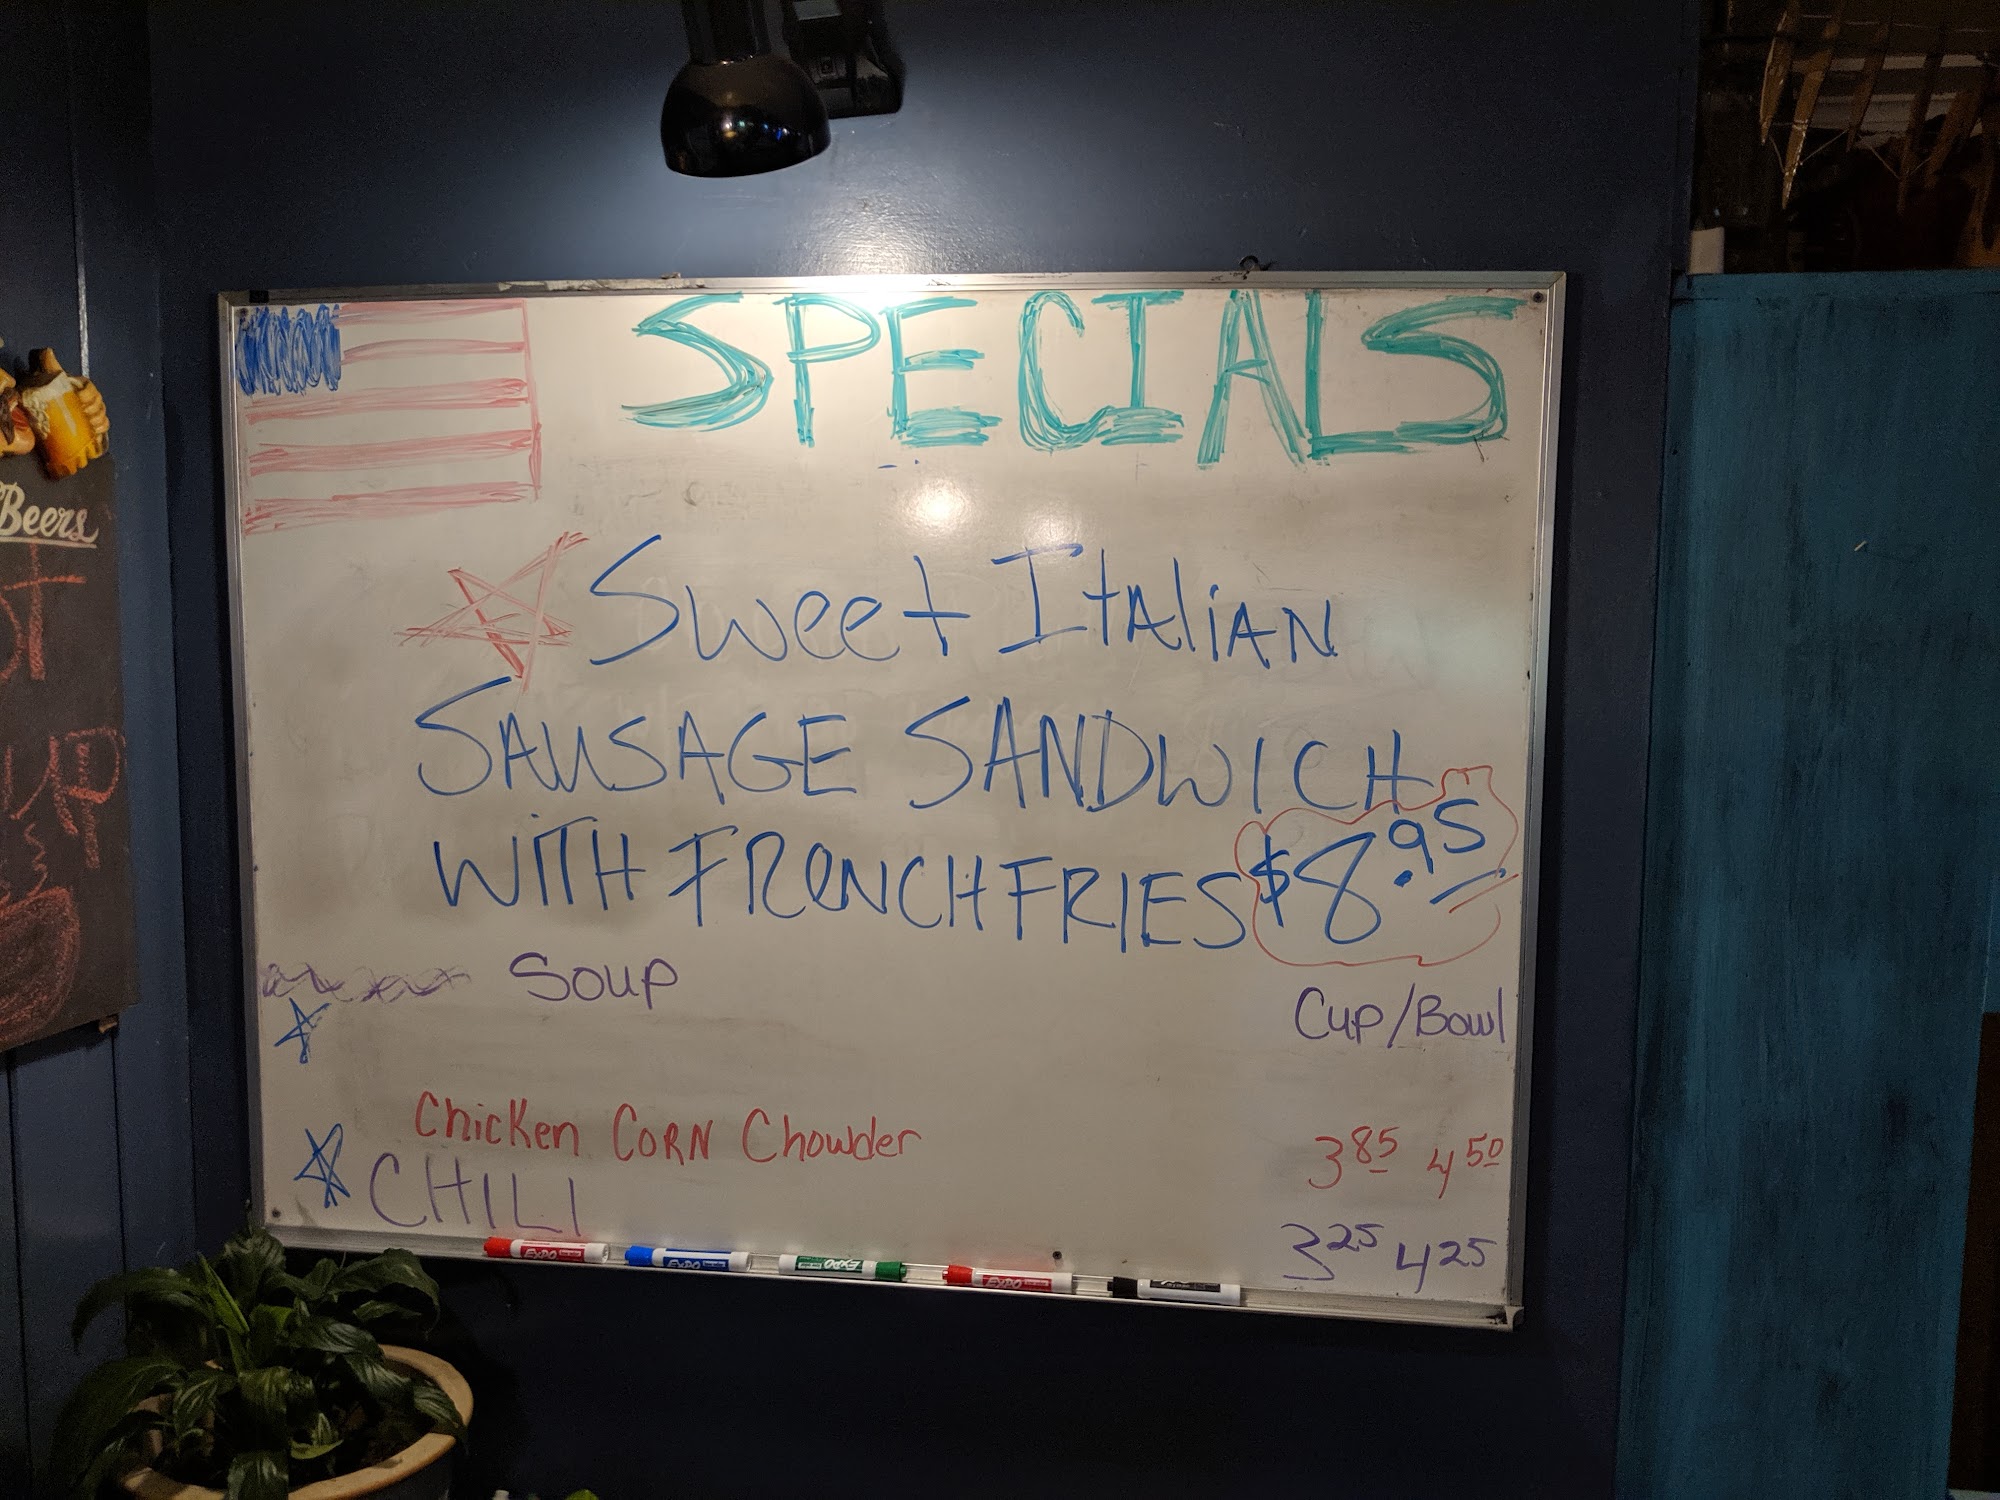 SPECIALS
Sweet Italian
SAUSAGE SANDWICH
WITH FRENCH FRIES $8.95
Soup Cup/Bowl
Chicken CORN Chowder 3 85 4 50
CHILI 3 25 4 25
Beers
EXPO
EXPO
EXPO
EXPO